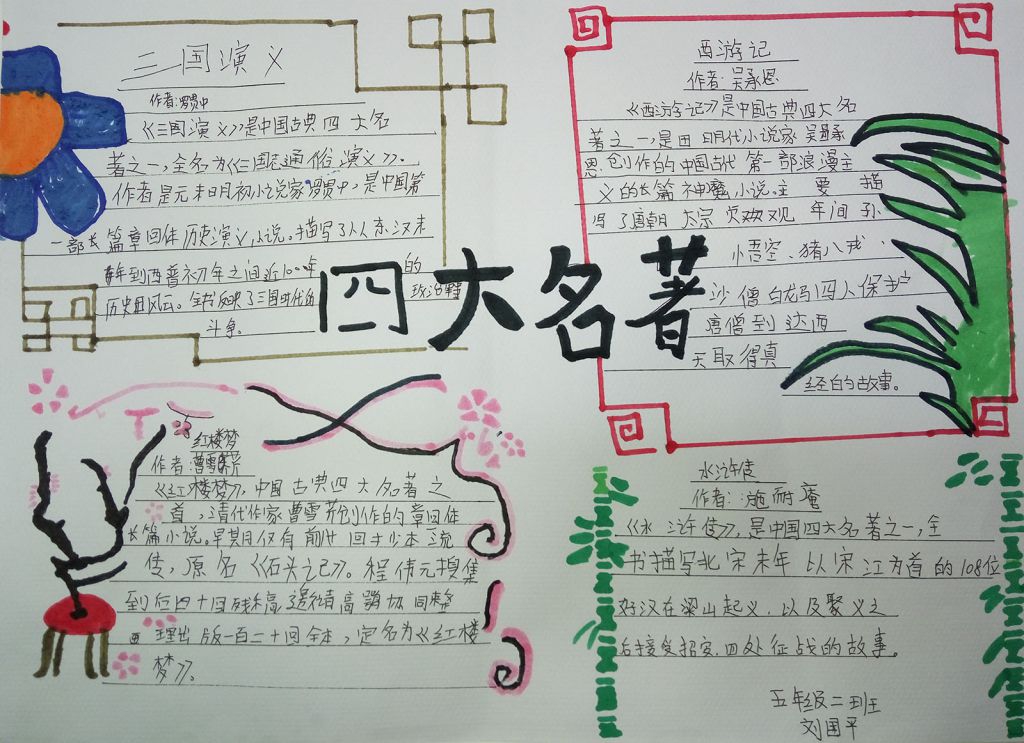 三国演义
作者:罗贯中
《三国演义》是中国古典四大名
著之一,全名为《三国志通俗演义》。
作者是元末明初小说家罗贯中,是中国第
一部长篇章回体历史演义小说。描写了从东汉末
年到西晋初年之间近100年的
历史风云。全书反映了三国时代的政治
斗争。
四大名著
西游记
作者:吴承恩
《西游记》是中国古典四大名
著之一,是由明代小说家吴承
恩创作的中国古代第一部浪漫主
义的长篇神魔小说。主要描
写了唐朝太宗贞观年间孙
悟空、猪八戒、
沙僧白龙马四人保护
唐僧到达西
天取得真
经的故事。
红楼梦
作者:曹雪芹
《红楼梦》,中国古典四大名著之
首,清代作家曹雪芹创作的章回体
长篇小说。早期仅有前八十回抄本流
传,原名《石头记》。程伟元搜集
到后四十回残稿高鹗协同
理出版一百二十回全本,定名为《红楼
梦》。
水浒传
作者:施耐庵
《水浒传》,是中国四大名著之一,全
书描写北宋末年以宋江为首的108位
好汉在梁山起义,以及聚义之
后接受招安、四处征战的故事。
五年级二班
刘国平